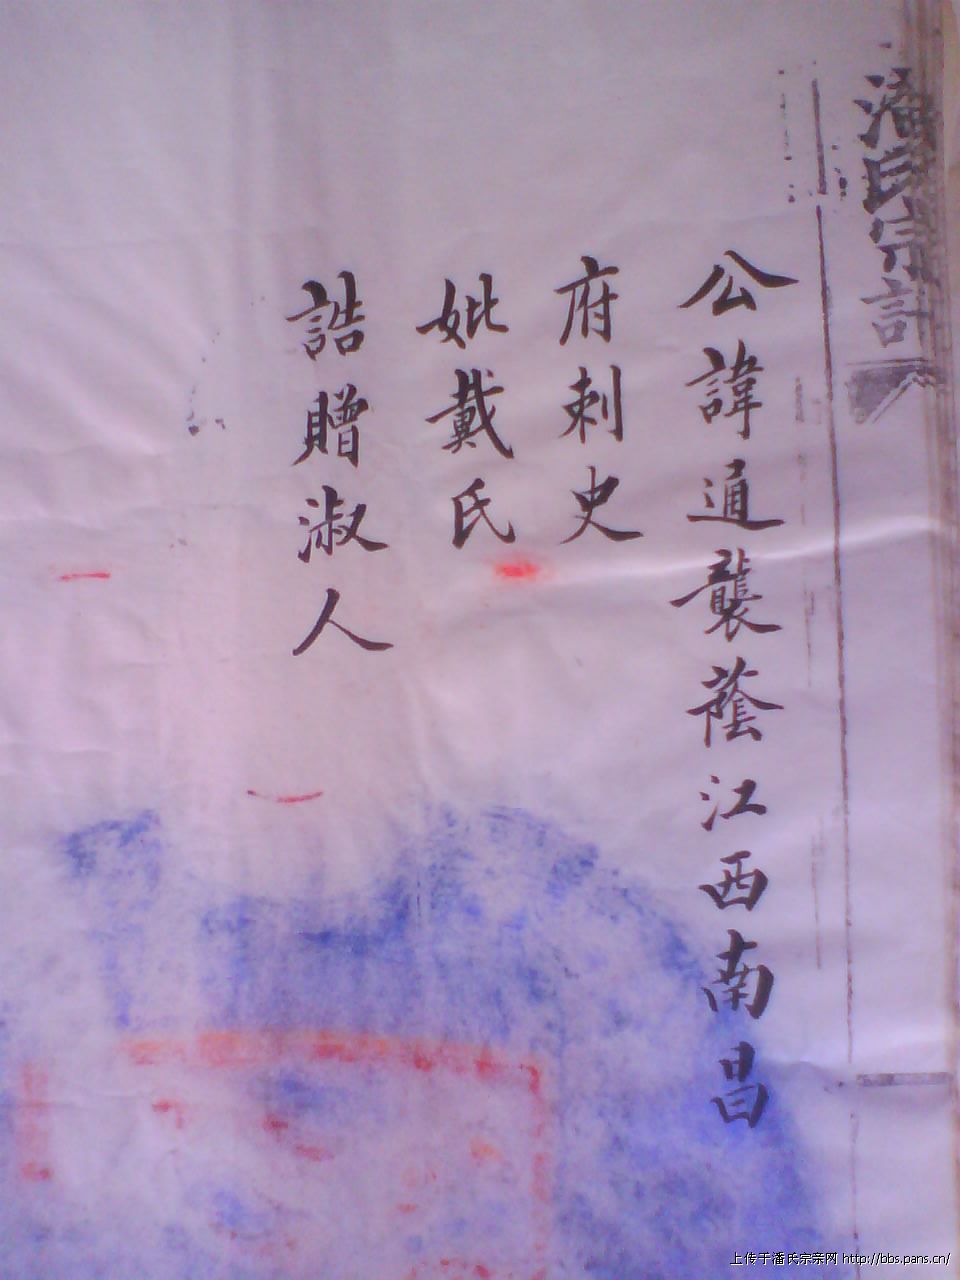 潘氏宗譜
公諱通襲蔭江西南昌
府刺史
妣戴氏
誥贈淑人
上传于潘氏宗亲网 http://bbs.pans.cn/